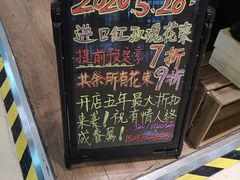 2020 5.20
进口红玫瑰花束
提前预定享7折
其余所有花束9折
开店五年最大折扣
来袭!祝有情人终
成眷属!